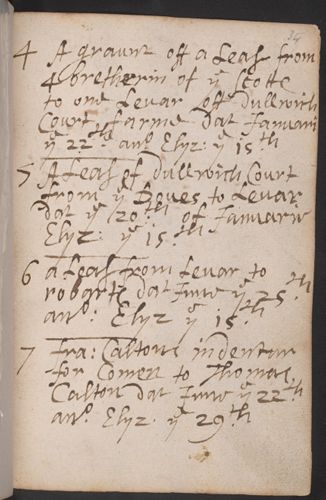 4 A graunt off a Leas from
4 bretherin of ye Scotts
to one Levar off dullwich
Court farme dat Januari
ye 22th ano Elyz: ye 15th
5 A Leas of dullwich Court
from ye to Levar
dat ye 20th of Januarie
Elyz: ye 15th
6 a Leas from Levar to
robarts dat June ye 25th
ano: Elyz ye 15th
7 fra: Caltons indentur
for Comen to Thomas
Calton dat June ye 22th
ano. Elyz. ye 29th